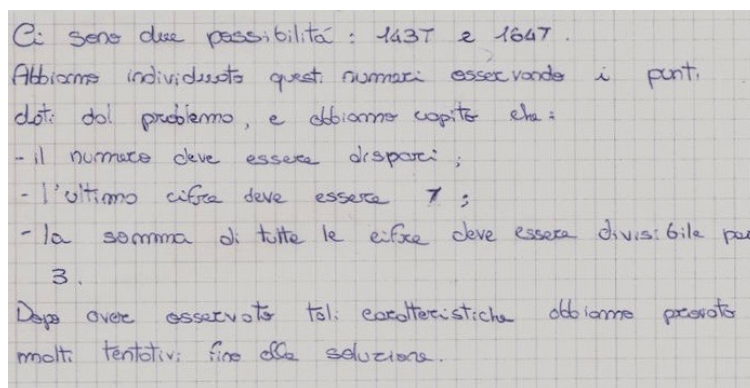 Ci sono due possibilità: 1437 e 1647.
Abbiamo individuato questi numeri osservando i punti
dati dal problema, e abbiamo capito che:
- il numero deve essere dispari;
- l'ultima cifra deve essere 7;
- la somma di tutte le cifre deve essere divisibile per
3.
Dopo avere osservato tali caratteristiche abbiamo provato
molti tentativi fino alla soluzione.